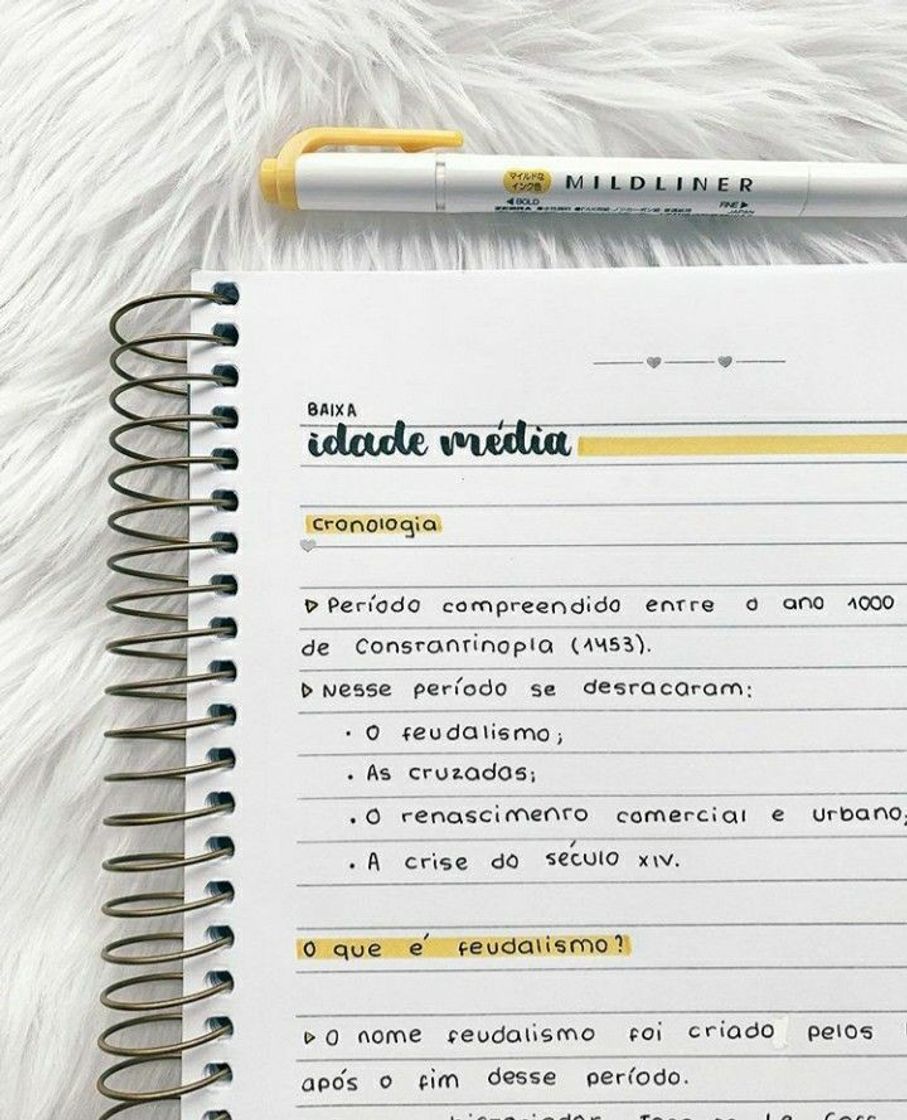 マイルドな
インク色
MILDLINER
◀BOLD
FINE▶
ZEBRA
JAPAN
BAIXA
idade média
cronologia
▷ Período compreendido entre o ano 1000
de Constantinopla (1453).
▷ Nesse período se destacaram:
· O feudalismo;
· As cruzadas;
· O renascimento comercial e urbano;
· A crise do século XIV.
O que é feudalismo?
▷ O nome feudalismo foi criado pelos
após o fim desse período.